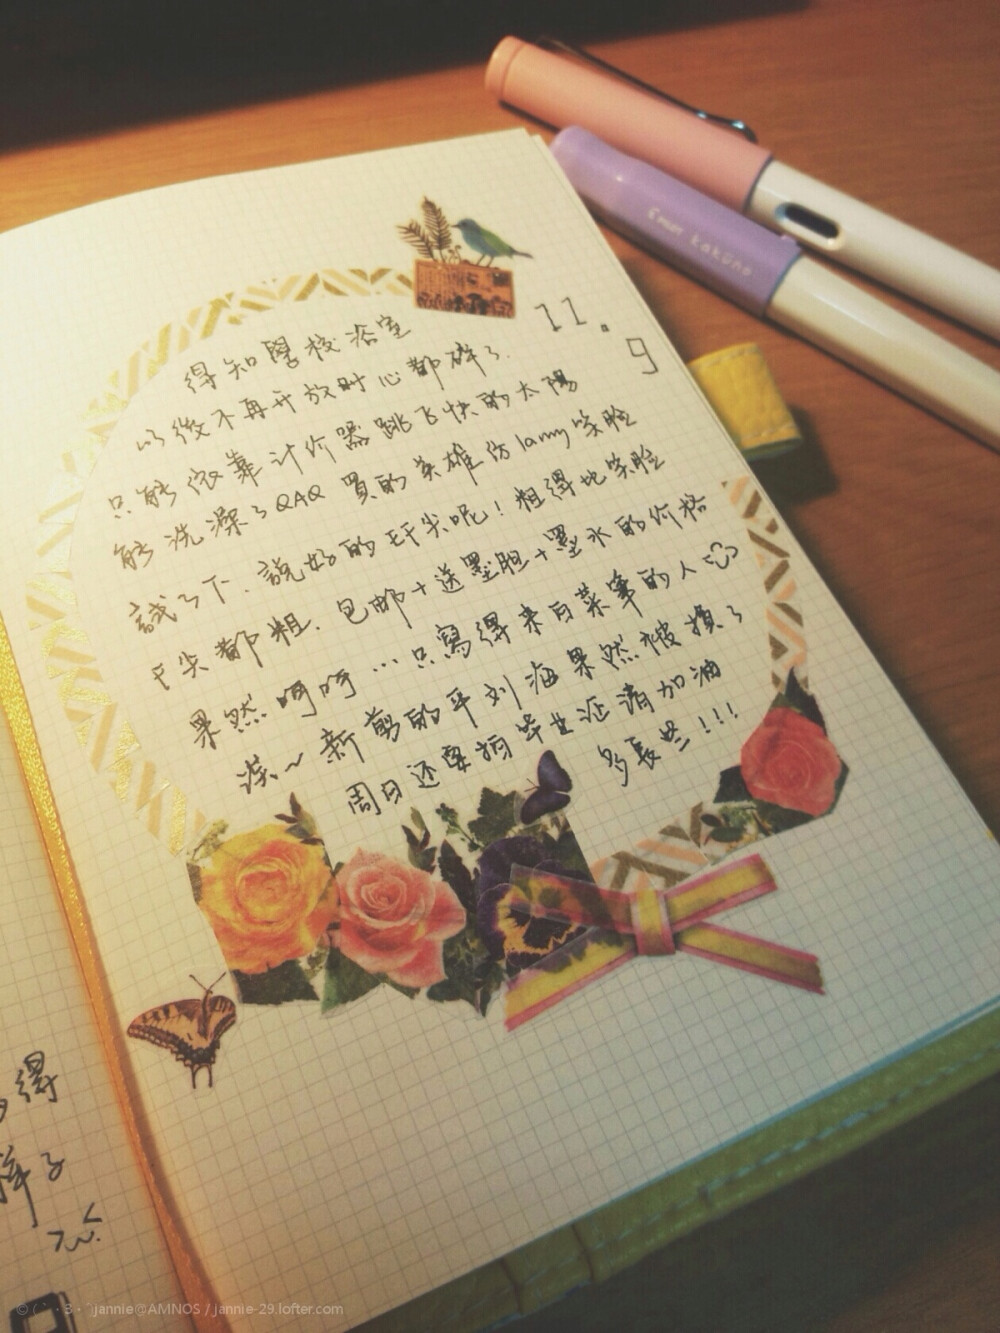 11.
9
得知學校浴室
以後不再开放时心都碎了.
只能依靠计价器跳飞快的太陽
能洗澡了QAQ 買的英雄仿lamy笑脸
試了下.說好的EF尖呢!粗得比笑脸
F尖都粗.包邮+送墨胆+墨水的价格
果然呵呵…只寫得来白菜筆的人
误~新剪的平刘海果然被損了
周日还要拍毕业证请加油
多長些!!!
kakuno
得
样子
©(`·3·´)jannie@AMNOS / jannie-29.lofter.com